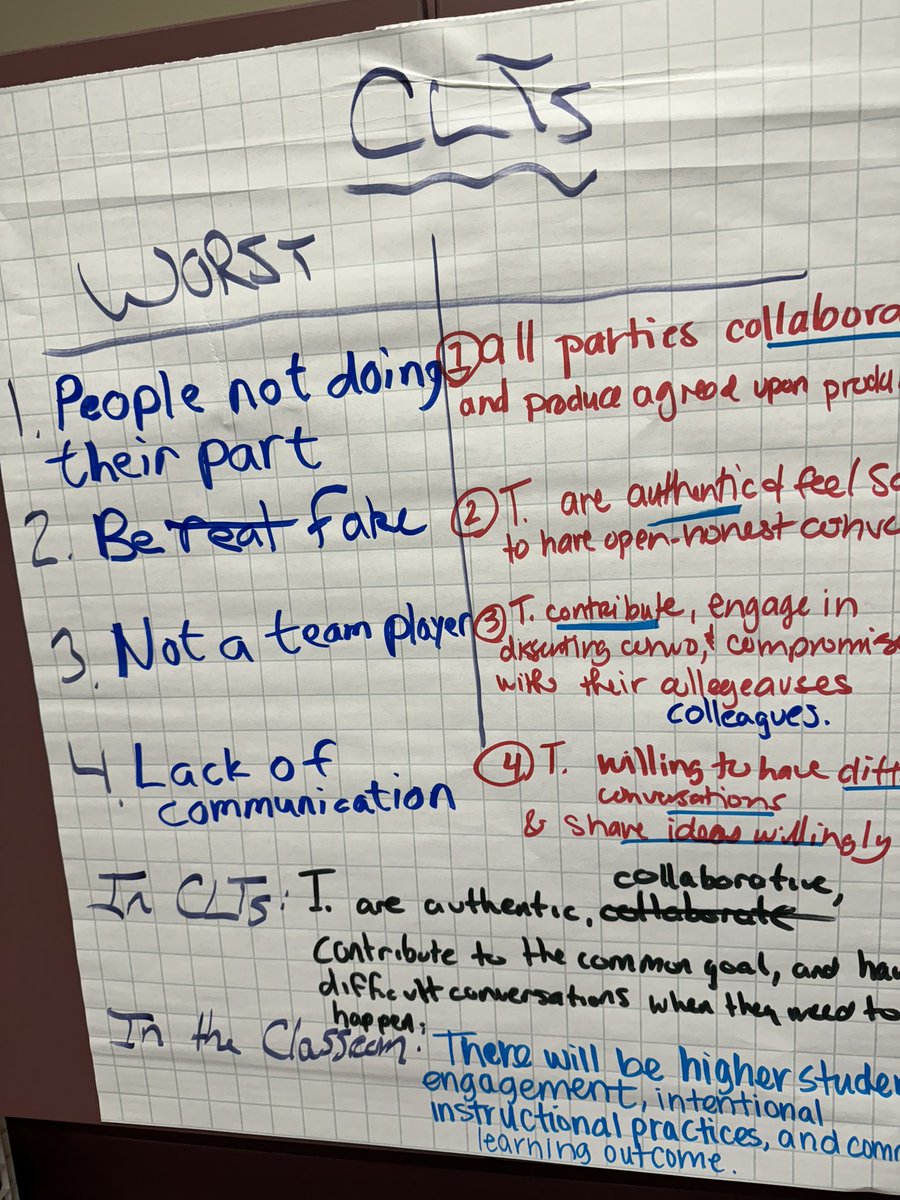 CLTs
WORST
1. People not doing
their part
2. Be real fake
3. Not a team player
4. Lack of
communication
① all parties collabora
and produce agreed upon produ
② T. are authentic & feel sa
to have open-honest conve
③ T. contribute, engage in
dissenting convo, & compromis
with their
colleagues.
④ T. willing to have diff
conversations
& share ideas willingly
In CLTs: T. are authentic, collaborate collaborative,
contribute to the common goal, and hav
difficult conversations when they need to
happen.
In the Classroom: There will be higher studen
engagement, intentional
instructional practices, and comm
learning outcome.